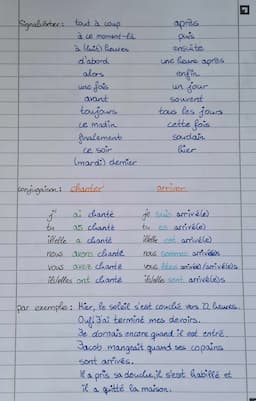 Signalwörter: tout à coup après
à ce moment-là puis
à (huit) heures ensuite
d'abord une heure après
alors enfin
une fois un jour
avant souvent
toujours tous les jours
ce matin cette fois
finalement soudain
ce soir hier
(mardi) dernier
conjugaison: chanter arriver
j' ai chanté je suis arrivé(e)
tu as chanté tu es arrivé(e)
il/elle a chanté il/elle est arrivé(e)
nous avons chanté nous sommes arrivé(e)s
vous avez chanté vous êtes arrivé(e)/arrivé(e)s
ils/elles ont chanté ils/elles sont arrivé(e)s
par exemple: Hier, le soleil s'est couché vers 22 heures.
Ouf! J'ai terminé mes devoirs.
Je dormais encore quand il est entré.
Jacob mangeait quand ses copains
sont arrivés.
Il a pris sa douche, il s'est habillé et
il a quitté la maison.